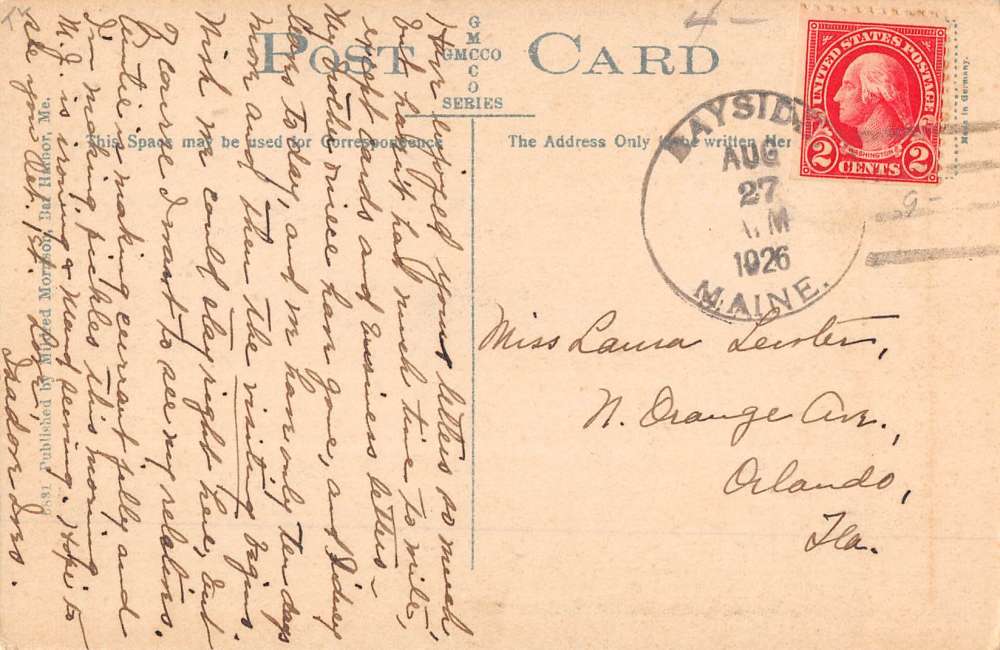 POST CARD
G
M
GMCCO
C
O
SERIES
This Space may be used for Correspondence
The Address Only to be written Here
Made in Germany.
UNITED STATES POSTAGE
WASHINGTON
2 CENTS 2
BAYSIDE
AUG
27
AM
1926
MAINE.
Miss Laura Leister,
N. Orange Ave.,
Orlando,
Fla.
Have enjoyed your letters so much,
but haven't had much time to write,
except cards and business letters –
My and niece have gone, and Sidney
leaves to-day, and we have only ten days
more and then the visiting begins.
Wish we could stay right here, but
of course I want to see my relatives.
Auntie is making currant jelly and
I'm making pickles this morning
M. J. is ironing & Maud sewing. Hope to
see you Oct. 1st. Love,
Isadore
Published by Mildred Morrison, Bar Harbor, Me.